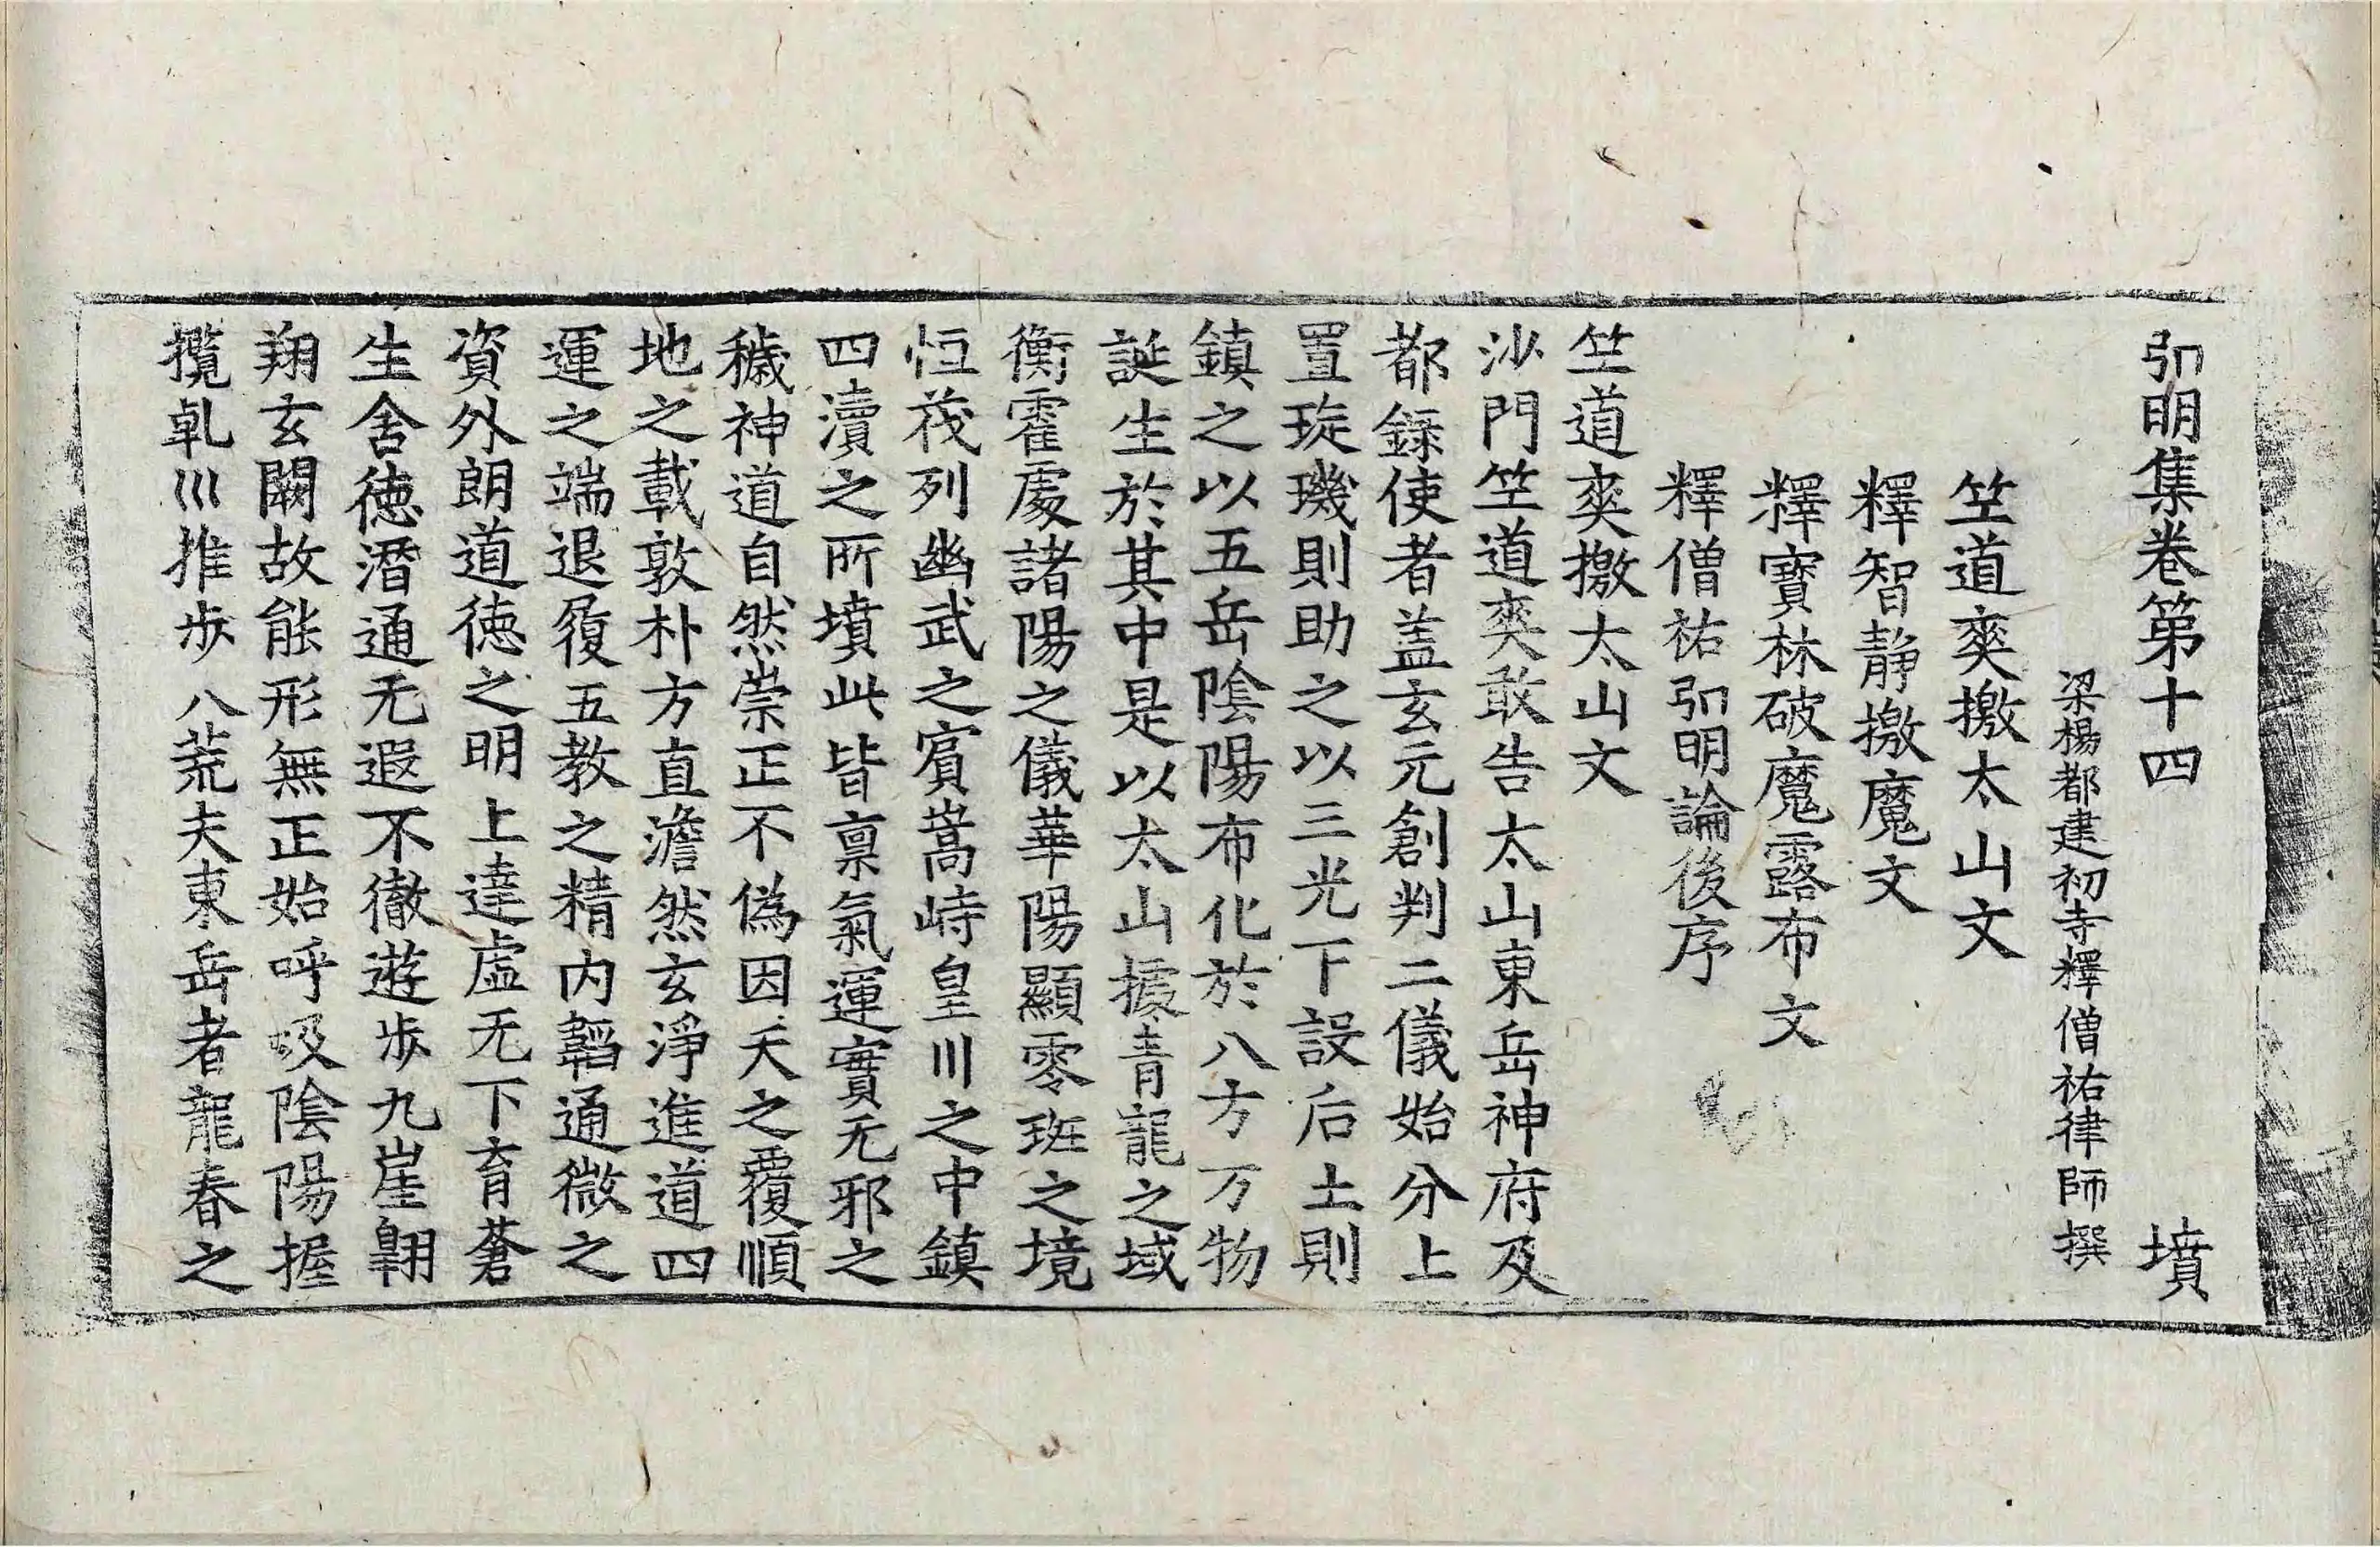 弘明集卷第十四 墳
梁楊都建初寺釋僧祐律師撰
竺道爽檄太山文
釋智靜檄魔文
釋寶林破魔露布文
釋僧祐弘明論後序
竺道爽檄太山文
沙門竺道爽敢告太山東岳神府及
都錄使者盖玄元創判二儀始分上
置琁璣則助之以三光下設后土則
鎮之以五岳陰陽布化於八方万物
誕生於其中是以太山據青龍之域
衡霍處諸陽之儀華陽顯零班之境
恒茷列幽武之賓嵩峙皇川之中鎮
四瀆之所墳此皆稟氣運實无邪之
穢神道自然崇正不偽因天之覆順
地之載敦朴方直澹然玄淨進道四
運之端退履五教之精內韜通微之
資外朗道德之明上達虛无下育蒼
生含德潛通无遐不徹遊步九崖翱
翔玄闕故能形無正始呼吸陰陽握
攬乹巛推步八荒夫東岳者龍春之